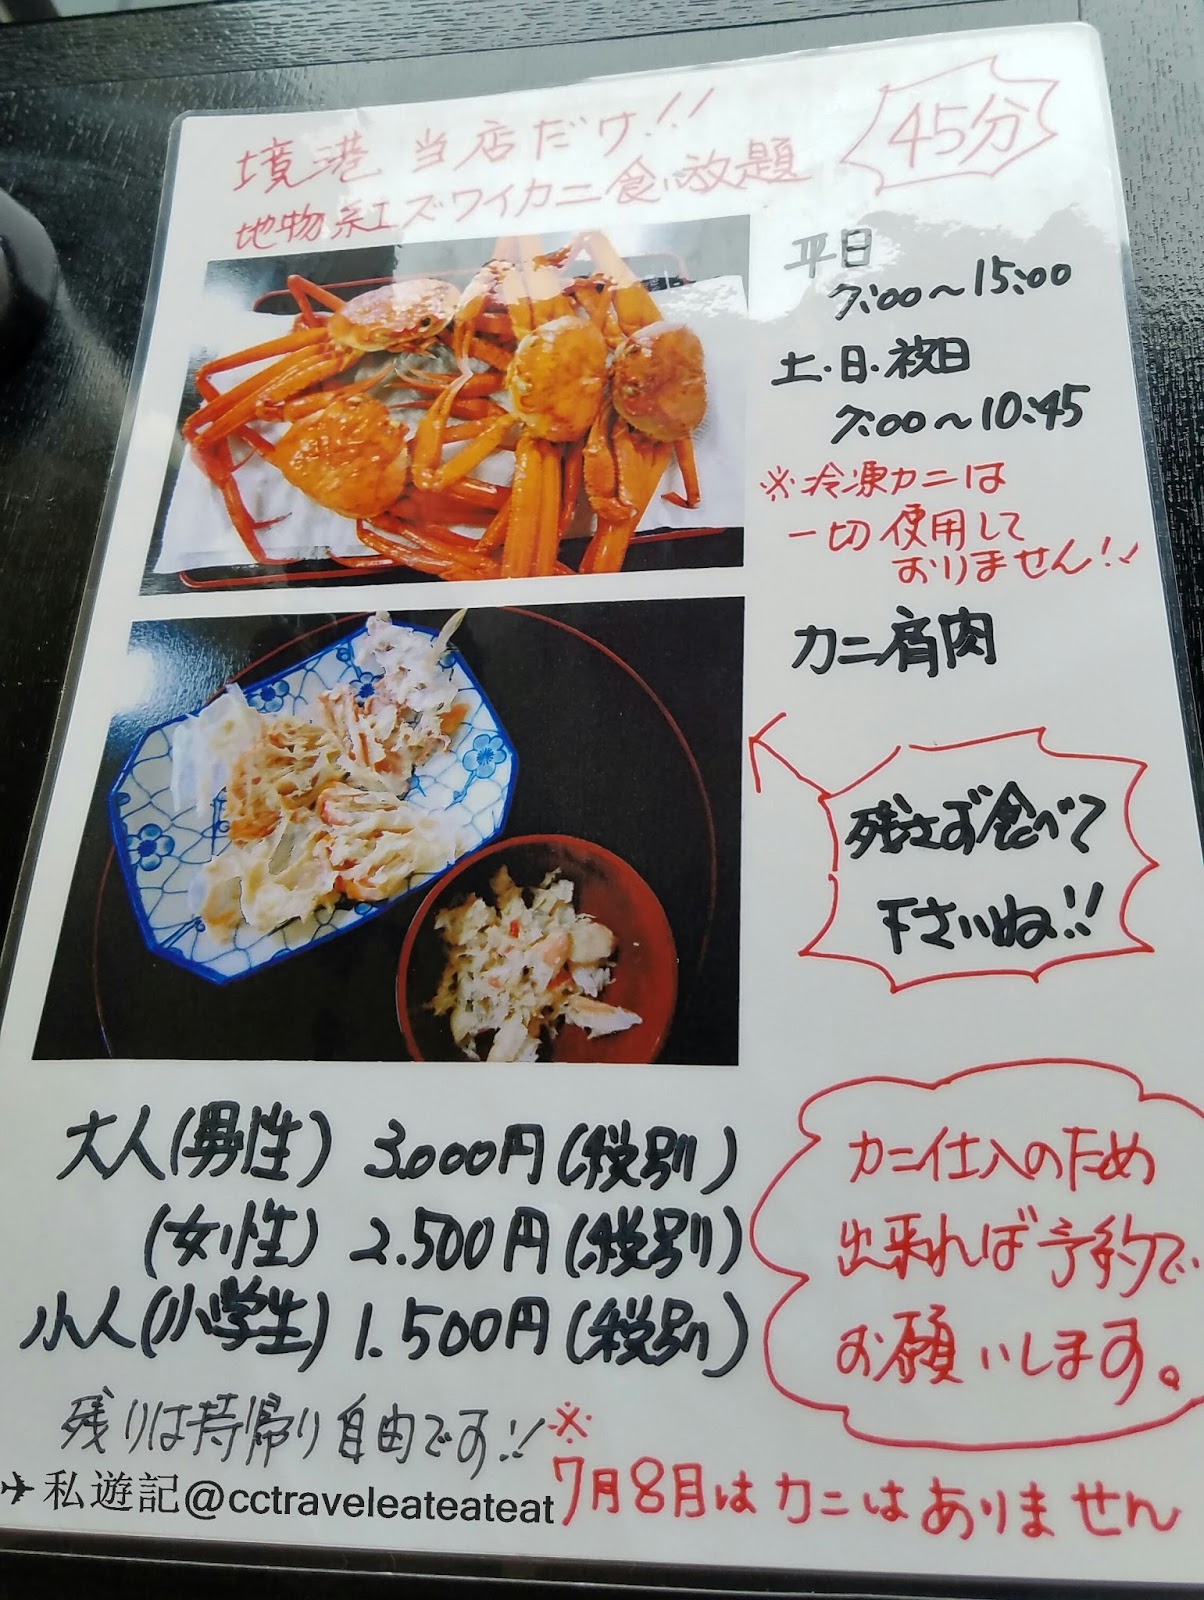 境港 当店だけ!!
45分
地物紅ズワイカニ食い放題
平日
7:00～15:00
土・日・祝日
7:00～10:45
※冷凍カニは
一切使用して
おりません!!
カニ肩肉
残さず食べて
下さいね!!
大人(男性) 3.000円(税別)
(女性) 2.500円(税別)
小人(小学生) 1.500円(税別)
カニ仕入のため
出来れば予約で
お願いします。
残りは持帰り自由です!!
※
7月8月はカニはありません
私遊記@cctraveleateateat